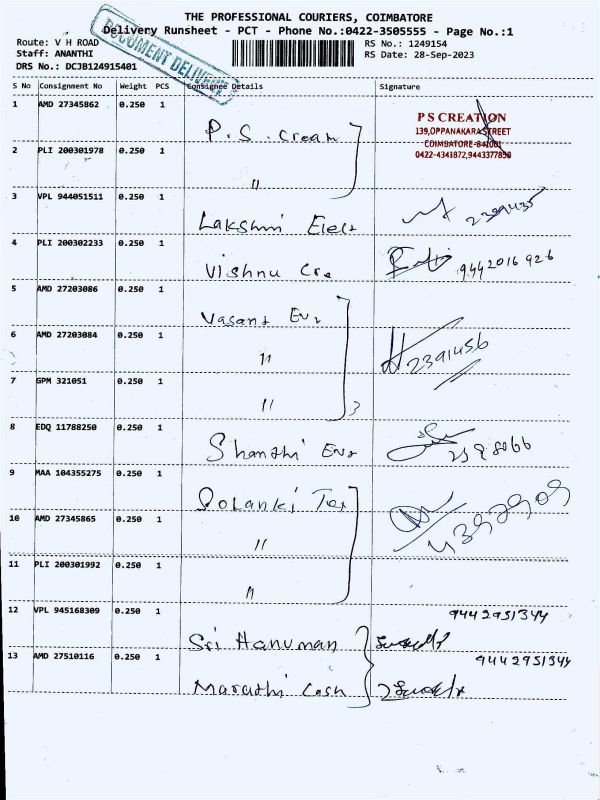 THE PROFESSIONAL COURIERS, COIMBATORE
Delivery Runsheet - PCT - Phone No.:0422-3505555 - Page No.:1
Route: V H ROAD
RS No.: 1249154
Staff: ANANTHI
RS Date: 28-Sep-2023
DRS No.: DCJB124915401
DOCUMENT DELIVERY
S No Consignment No Weight PCS Consignee Details Signature
1 AMD 27345862 0.250 1
P.S. Cream
P S CREATION
139,OPPANAKARA STREET
COIMBATORE-641001
0422-4341872,9443377858
2 PLI 200301978 0.250 1
"
3 VPL 944051511 0.250 1
Lakshmi Elect
4 PLI 200302233 0.250 1
Vishnu Cre 9442016926
5 AMD 27203086 0.250 1
Vasant Ent
6 AMD 27203084 0.250 1
" 2391456
7 GPM 321051 0.250 1
" 3
8 EDQ 11788250 0.250 1
Shanthi Ent
9 MAA 104355275 0.250 1
Solanki Tex
10 AMD 27345865 0.250 1
"
11 PLI 200301992 0.250 1
"
12 VPL 945168309 0.250 1 9442951344
Sri Hanuman
13 AMD 27510116 0.250 1 9442951344
Maruthi Cash